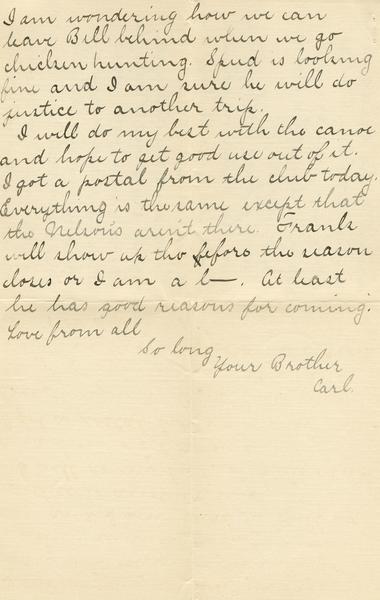 I am wondering how we can
leave Bill behind when we go
chicken hunting. Spud is looking
fine and I am sure he will do
justice to another trip.
I will do my best with the canoe
and hope to get good use out of it.
I got a postal from the club today.
Everything is the same except that
the Nelson's aren't there. Frank
will show up tho before the season
closes or I am a b—. At least
he has good reasons for coming.
Love from all
So long
Your Brother
Carl.